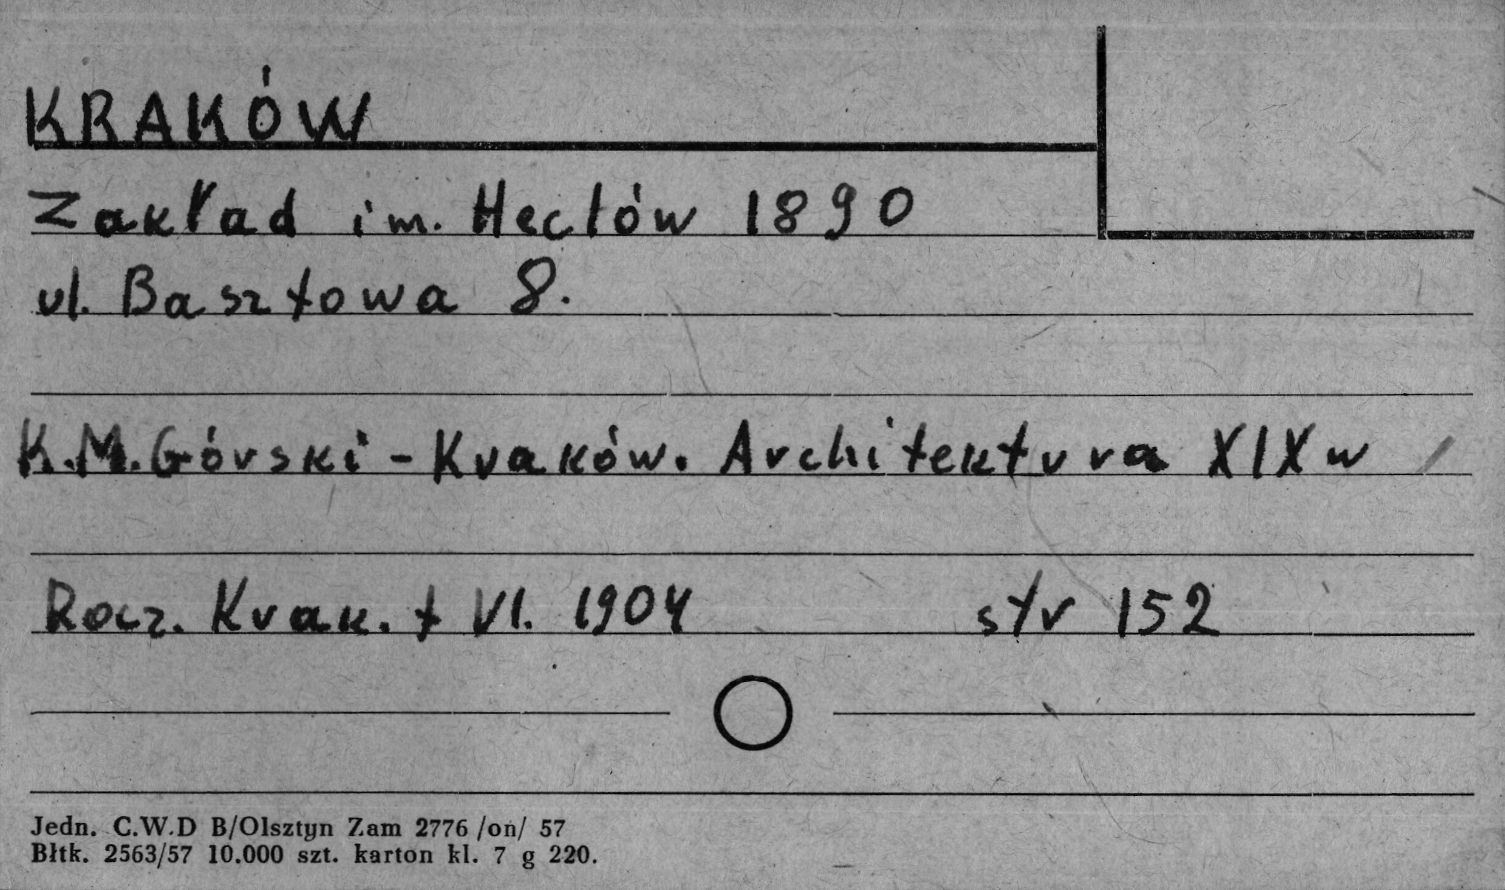 KRAKÓW
Zakład im. Heclów 1890
ul. Basztowa 8.
K.M.Górski - Kraków. Architektura XIX w
Rocz. Krak. t VI. 1904 str 152
Jedn. C.W.D B/Olsztyn Zam 2776 /on/ 57
Błtk. 2563/57 10.000 szt. karton kl. 7 g 220.